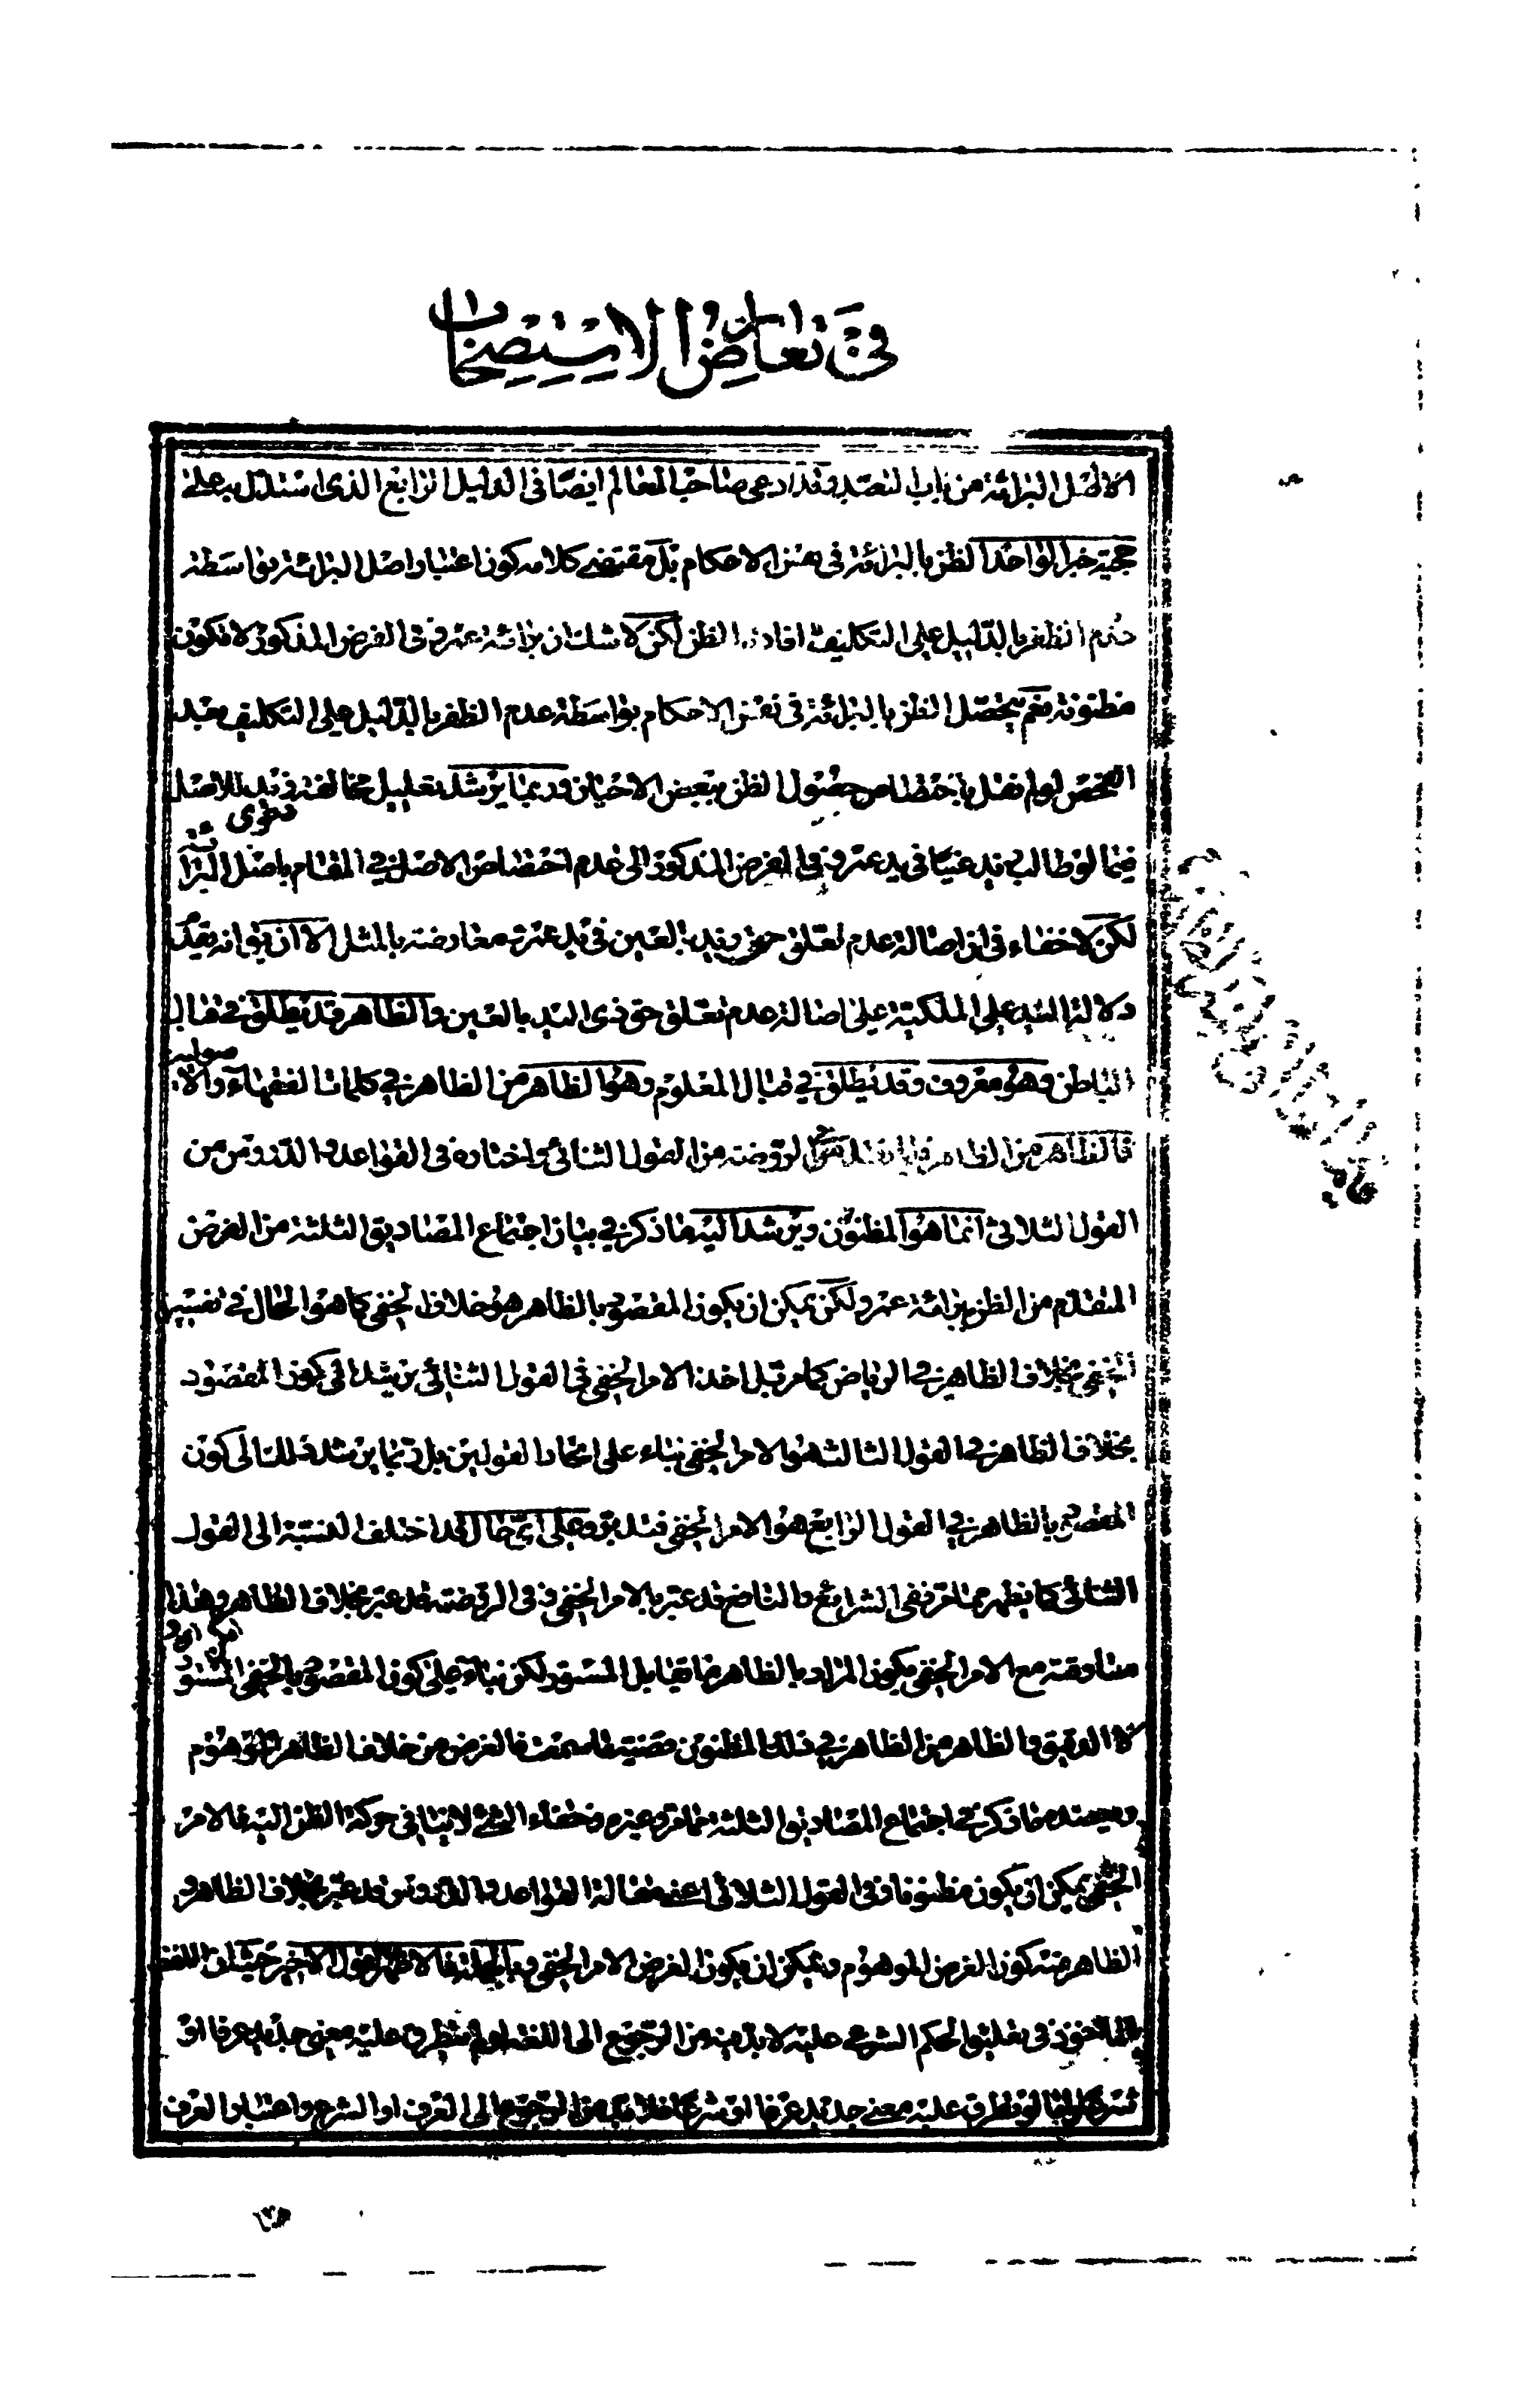 في تعارض الاستصحاب
الاصل البرائة من باب التعبد وقد ادعى صاحب المعالم ايضا في الدليل الرابع الذى استدل به على
حجية خبر الواحد الظن بالبرائة في نفس الاحكام بل مقتضى كلامه كون اعتبار اصل البرائة بواسطة
عدم الظفر بالدليل على التكليف افادة الظن لكن لا شك ان برائة عمرو في الفرض المذكور لا تكون
مظنونة نعم يحصل الظن بالبرائة في نفس الاحكام بواسطة عدم الظفر بالدليل على التكليف بعد
الفحص لو لم نقل باختصاص حصول الظن ببعض الاحيان وربما يرشد تعليل مخالفة زيد للاصل
دعوى
فيما لو طالب زيد عينا في يد عمرو في الفرض المذكور الى عدم اختصاص الاصل في المقام باصل البرائة
لكن لا خفاء في ان اصالة عدم تعلق حق زيد بالعين في يد عمرو معارضة بالمثل الا ان يق انه يقدم
دلالة اليد على الملكية على اصالة عدم تعلق حق ذى اليد بالعين والظاهر قد يطلق في مقابل
الباطن وهو معروف وقد يطلق في قبال المعلوم وهو الظاهر من الظاهر في كلمات الفقهاء والاصوليين
فالظاهر من الظاهر فيما الروضة من القول الثنائى واختاره في القواعد والدروس من
القول الثلاثى انما هو المظنون ويرشد اليه ما ذكر في بيان اجتماع المصاديق الثلثة من الفرض
المتقدم من الظن ببرائة عمرو لكن يمكن ان يكون المقصود بالظاهر هو خلاف الخفى كما هو الحال في تفسير
الخفى بخلاف الظاهر في الرياض كما مر قبل اخذ الامر الخفى في القول الثنائى يرشد الى كون المقصود
بخلاف الظاهر في القول الثالث هو الامر الخفى بناء على اتحاد القولين بل ربما يرشد ذلك الى كون
المقصود بالظاهر في القول الرابع هو الامر الخفى فتدبر وعلى اى حال قد اختلف النسبة الى القول
الثنائى كما يظهر مما مر ففى الشرايع والنافع قد عبر بالامر الخفى وفي الروضة قد عبر بخلاف الظاهر وهذا
متاوقة مع الامر الخفى يكون المراد بالظاهر ما يقابل المستور لكن بناء على كون المقصود بالخفى المستور
لا الدقيق والظاهر من الظاهر في ذلك المظنون مقتضية ما سمعت فالغرض من خلاف الظاهر الموهوم
ويعضده ما ذكر في اجتماع المصاديق الثلثة مما مر وغيره وخفاء الشئ لا ينافى حركة الظن اليه فالامر
الخفى يمكن ان يكون مظنونا وفي القول الثلاثى اعنى مقالة القواعد والدروس قد عبر بخلاف الظاهر و
الظاهر منه كون الغرض الموهوم ويمكن ان يكون الغرض الامر الخفى وبالجملة فالاظهر القول الاخير حيث ان اللفظ
الماخوذ في تعليق الحكم الشرعى عليه لابد فيه من الرجوع الى اللغة لو لم يتطرق عليه معنى جديد عرفا او
شرعا واما لو تطرق عليه معنى جديد عرفا او شرعا فلابد من الرجوع الى العرف او الشرع واعتبار العرف